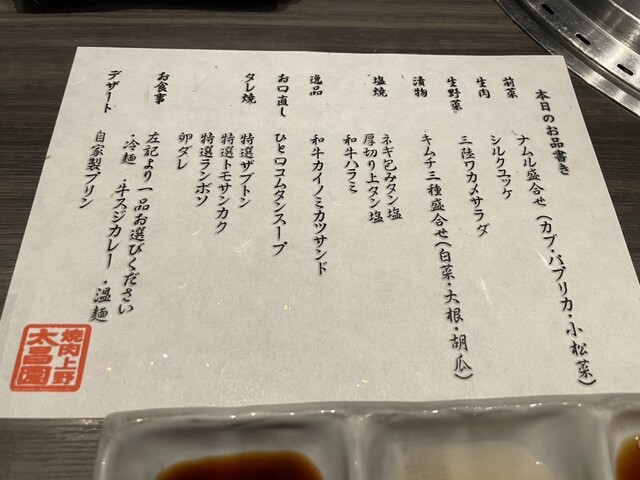 本日のお品書き
前菜 ナムル盛合せ(カブ・パプリカ・小松菜)
生肉 シルクユッケ
生野菜 三陸ワカメサラダ
漬物 キムチ三種盛合せ(白菜・大根・胡瓜)
塩焼 ネギ包みタン塩
厚切り上タン塩
和牛ハラミ
逸品 和牛カイノミカツサンド
お口直し ひと口コムタンスープ
タレ焼 特選ザブトン
特選トモサンカク
特選ランボソ
卵ダレ
お食事 左記より一品お選びください
・冷麺 ・牛スジカレー ・温麺
デザート 自家製プリン
焼肉上野
太昌園